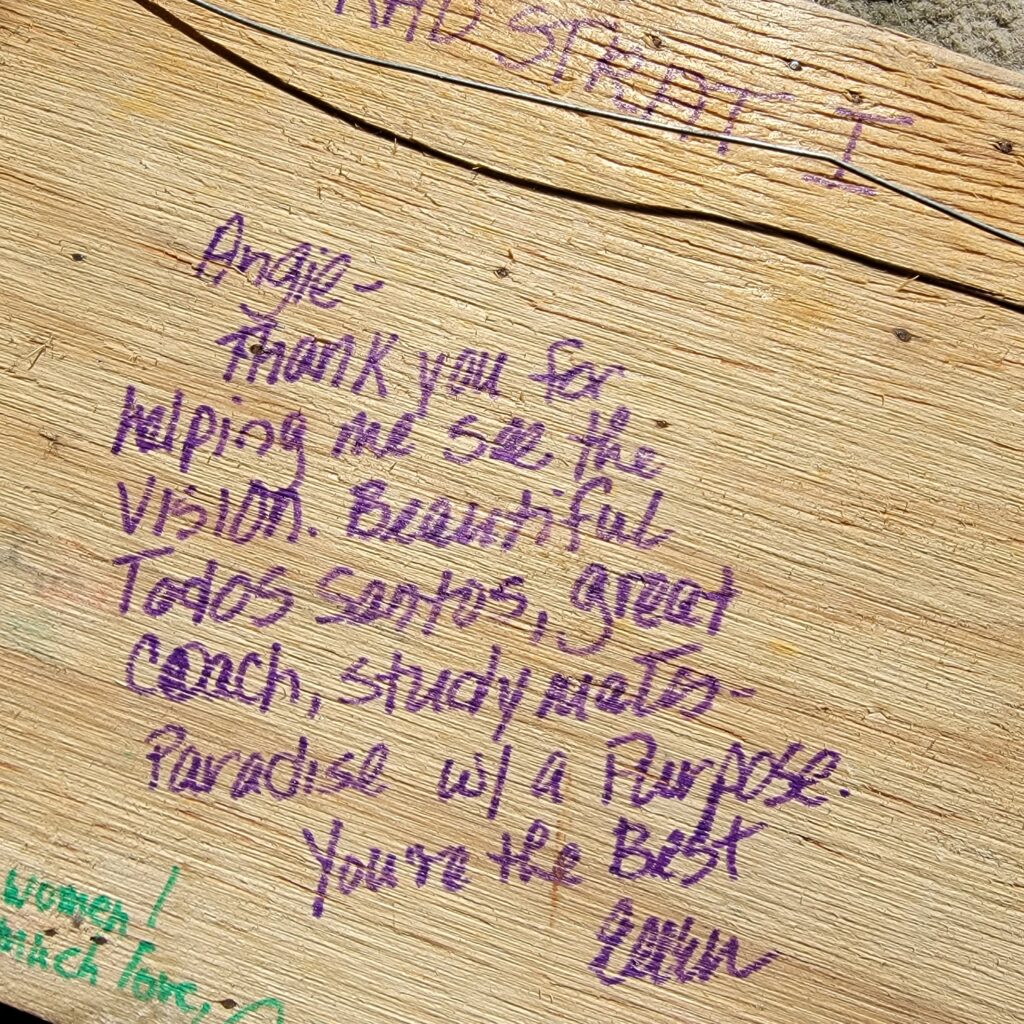 STRAT I
Angie-
Thank you for
helping me see the
vision. Beautiful
Todos Santos, great
coach, study mates-
Paradise w/ a Purpose.
You're the Best
women!
much love,